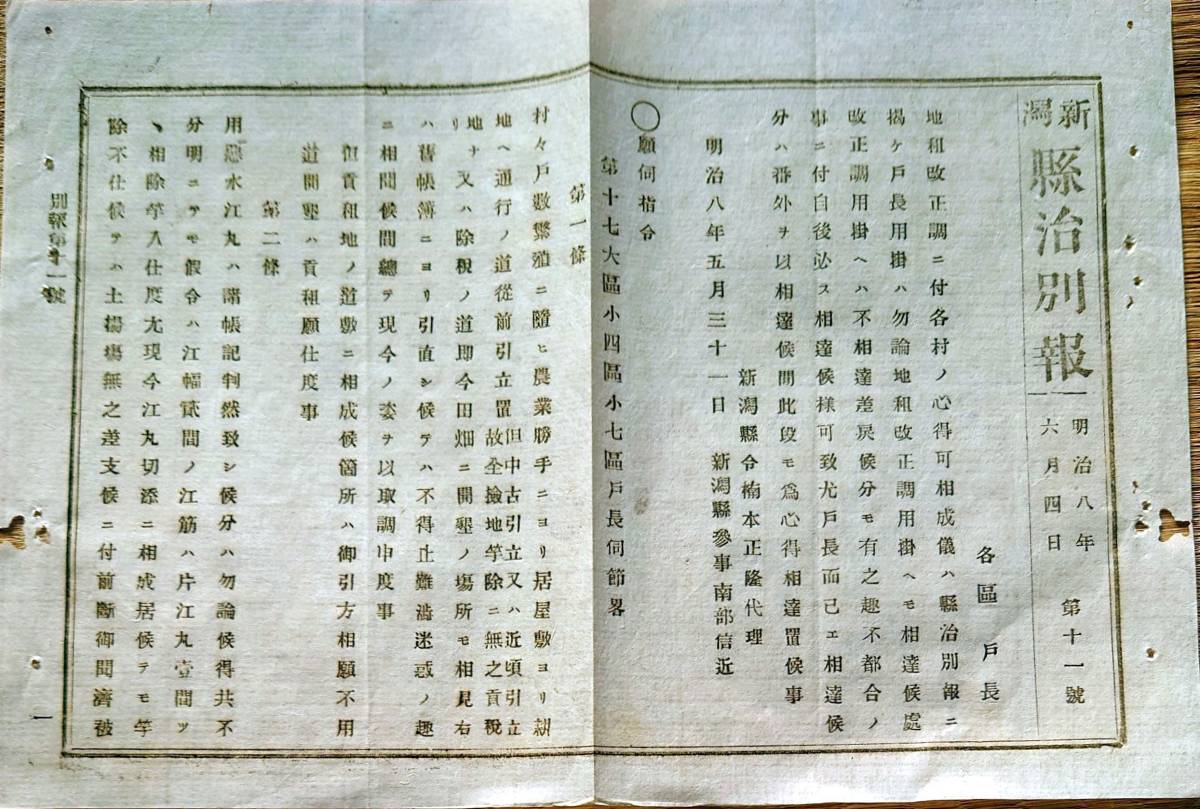 新潟縣治別報
明治八年六月四日 第十一號
各區戸長
地租改正調ニ付各村ノ心得可相成儀ハ縣治別報ニ
揭ケ戸長用掛ハ勿論地租改正調用掛ヘモ相達候處
改正調用掛ヘハ不相達差戾候分モ有之趣不都合ノ
事ニ付自後必ス相達候樣可致尤戸長而已エ相達候
分ハ番外ヲ以相達候間此段モ爲心得相達置候事
新潟縣令楠本正隆代理
明治八年五月三十一日 新潟縣參事南部信近
〇願伺指令
第十七大區小四區小七區戸長伺節畧
第一條
村々戸數繁殖ニ隨ヒ農業勝手ニヨリ居屋敷ヨリ耕
地ヘ通行ノ道從前引立置
但中古引立又ハ近頃引立
故全撿地竿除ニ無之貢税
地ナリ
又ハ除税ノ道即今田畑ニ開墾ノ塲所モ相見右
ハ舊帳簿ニヨリ引直シ候テハ不得止難澁迷惑ノ趣
ニ相聞候間總テ現今ノ姿ヲ以取調中度事
但貢租地ノ道敷ニ相成候箇所ハ御引方相願不用
道開墾ハ貢租願仕度事
第二條
用惡水江丸ハ諸帳記判然致シ候分ハ勿論候得共不
分明ニテモ假令ハ江幅貳間ノ江筋ハ片江丸壹間ツ
ヽ相除竿入仕度尤現今江丸切添ニ相成居候テモ竿
除不仕候テハ土揚塲無之差支候ニ付前斷御聞濟被
別報第十一號
一